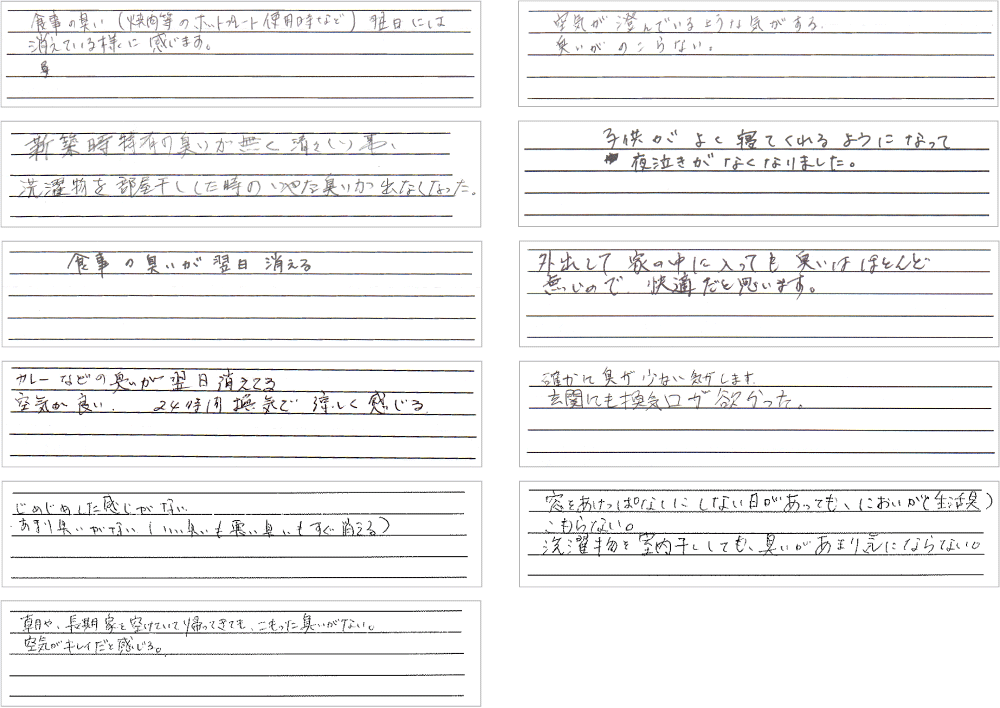 食事の臭い(焼肉等のホットプレート使用時など)翌日には
消えている様に感じます。
空気が澄んでいるような気がする.
臭いがのこらない。
新築時特有の臭いが無く清々しい事、
洗濯物を部屋干しした時のいやな臭いが出なくなった。
子供がよく寝てくれるようになって
夜泣きがなくなりました。
食事の臭いが翌日消える
外出して家の中に入っても臭いはほとんど
無いので快適だと思います。
カレーなどの臭いが翌日消えてる
空気が良い. 24時間換気で涼しく感じる.
確かに臭が少ない気がします.
玄関にも換気口が欲かった。
じめじめした感じがない
あまり臭いがない(いい臭いも悪い臭いもすぐ消える)
窓をあけっぱなしにしない日があっても、においが(生活臭)
こもらない。
洗濯物を室内干ししても、臭いがあまり気にならない。
朝や、長期家を空けていて帰ってきても、こもった臭いがない。
空気がキレイだと感じる。